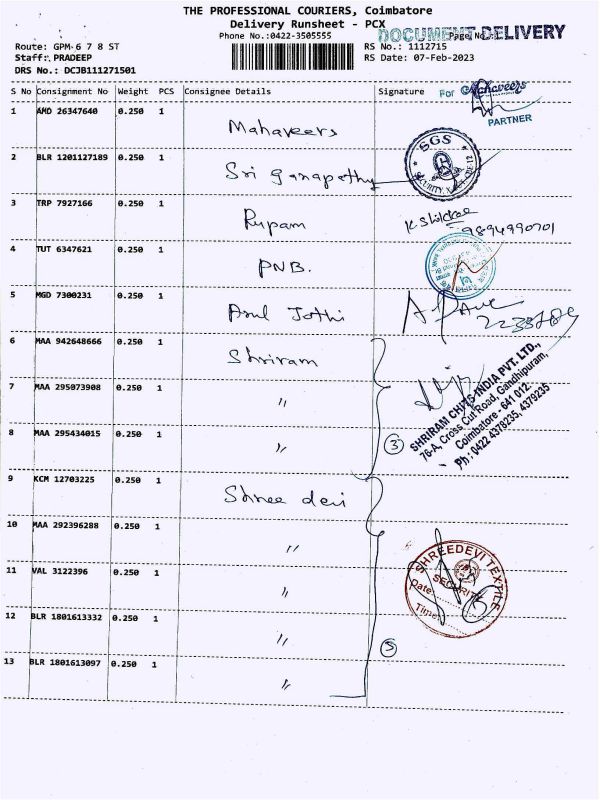 THE PROFESSIONAL COURIERS, Coimbatore
Delivery Runsheet - PCX
DOCUMENT DELIVERY
Phone No.:0422-3505555
Page No
Route: GPM-6 7 8 ST
RS No.: 1112715
Staff: PRADEEP
RS Date: 07-Feb-2023
DRS No.: DCJB111271501
S No Consignment No Weight PCS Consignee Details Signature
For Mahaveers
PARTNER
1 AMD 26347640 0.250 1 Mahaveers
SGS
2 BLR 1201127189 0.250 1 Sri Ganapathy
3 TRP 7927166 0.250 1 Rupam
9894990701
4 TUT 6347621 0.250 1 PNB.
5 MGD 7300231 0.250 1 Arul Jothi
6 MAA 942648666 0.250 1 Shriram
7 MAA 295073908 0.250 1 "
8 MAA 295434015 0.250 1 "
3
SHRIRAM CHITS INDIA PVT. LTD.,
76-A, Cross Cut Road, Gandhipuram,
Coimbatore - 641 012.
Ph : 0422 4378235, 4379235
9 KCM 12703225 0.250 1 Shree devi
10 MAA 292396288 0.250 1 "
11 VAL 3122396 0.250 1 "
SHREEDEVI TEXTILE
SECURITY
Date:
Time:
12 BLR 1801613332 0.250 1 "
5
13 BLR 1801613097 0.250 1 "